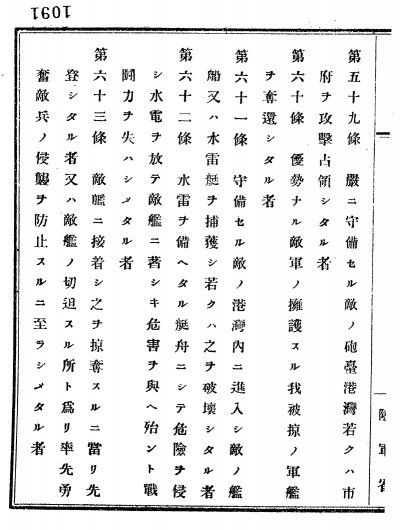 1091
第五十九條　嚴ニ守備セル敵ノ砲臺港灣若クハ市
府ヲ攻擊占領シタル者
第六十條　優勢ナル敵軍ノ擁護スル我被掠ノ軍艦
ヲ奪還シタル者
第六十一條　守備セル敵ノ港灣內ニ進入シ敵ノ艦
船又ハ水雷艇ヲ捕獲シ若クハ之ヲ破壞シタル者
第六十二條　水雷ヲ備ヘタル艇舟ニシテ危險ヲ侵
シ水電ヲ放テ敵艦ニ著シキ危害ヲ與ヘ殆ント戰
鬪力ヲ失ハシメタル者
第六十三條　敵艦ニ接着シ之ヲ掠奪スルニ當リ先
登シタル者又ハ敵艦ノ切迫スル所ト爲リ率先勇
奮敵兵ノ侵襲ヲ防止スルニ至ラシメタル者
陸軍省